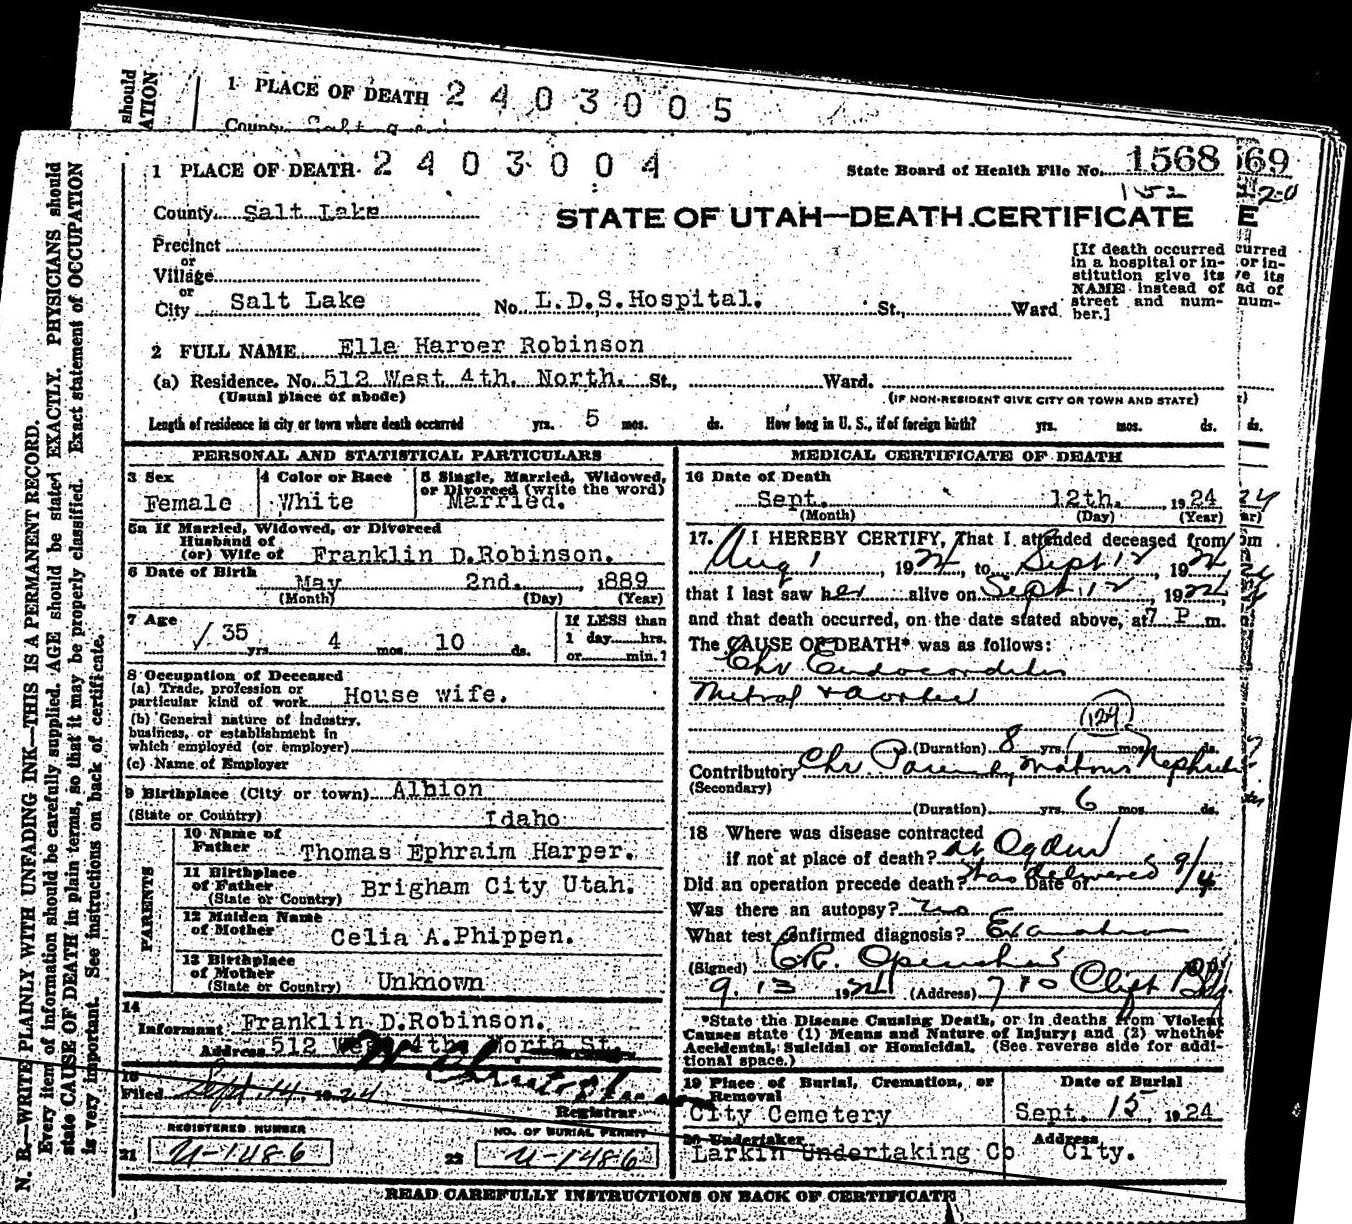 should
ATION
1 PLACE OF DEATH 2 4 0 3 0 0 5
County Salt
N. B.—WRITE PLAINLY WITH UNFADING INK—THIS IS A PERMANENT RECORD.
Every item of information should be carefully supplied. AGE should be stated EXACTLY. PHYSICIANS should
state CAUSE OF DEATH in plain terms, so that it may be properly classified. Exact statement of OCCUPATION
is very important. See instructions on back of certificate.
1 PLACE OF DEATH 2 4 0 3 0 0 4
State Board of Health File No. 1568
569
152
20
County Salt Lake
STATE OF UTAH—DEATH CERTIFICATE
E
Precinct
or
Village
or
City Salt Lake No. L.D.S.Hospital. St., Ward
[If death occurred
in a hospital or in-
stitution give its
NAME instead of
street and num-
ber.]
curred
or in-
ve its
ad of
num-
2 FULL NAME Ella Harper Robinson
(a) Residence. No. 512 West 4th. North. St., Ward.
(Usual place of abode) (IF NON-RESIDENT GIVE CITY OR TOWN AND STATE)
Length of residence in city or town where death occurred yrs. 5 mos. ds. How long in U. S., if of foreign birth? yrs. mos. ds. ds.
PERSONAL AND STATISTICAL PARTICULARS
3 Sex
Female
4 Color or Race
White
5 Single, Married, Widowed,
or Divorced (write the word)
Married.
5a If Married, Widowed, or Divorced
Husband of
(or) Wife of Franklin D.Robinson.
6 Date of Birth
May 2nd. 1889
(Month) (Day) (Year)
7 Age
35 yrs. 4 mos. 10 ds.
If LESS than
1 day hrs.
or min.?
8 Occupation of Deceased
(a) Trade, profession or
particular kind of work House wife.
(b) General nature of industry,
business, or establishment in
which employed (or employer)
(c) Name of Employer
9 Birthplace (City or town) Albion
(State or Country) Idaho
PARENTS
10 Name of
Father Thomas Ephraim Harper.
11 Birthplace
of Father
(State or Country) Brigham City Utah.
12 Maiden Name
of Mother Celia A.Phippen.
13 Birthplace
of Mother
(State or Country) Unknown
14
Informant Franklin D.Robinson.
Address 512 West 4th. North St.
15
Filed Sept. 14 1924
Registrar
REGISTERED NUMBER
21 U-1486
NO. OF BURIAL PERMIT
22 U-1486
MEDICAL CERTIFICATE OF DEATH
16 Date of Death
Sept. 12th. 1924
(Month) (Day) (Year)
17. I HEREBY CERTIFY, That I attended deceased from
Aug 1, 1924, to Sept 12, 1924
that I last saw her alive on Sept 12, 1924,
and that death occurred, on the date stated above, at 7 P m.
The CAUSE OF DEATH* was as follows:
Chr Endocarditis
Mitral & Aortic
(129)
(Duration) 8 yrs. mos. ds.
Contributory Chr Parenchymatous Nephritis
(Secondary)
(Duration) yrs. 6 mos. ds.
18 Where was disease contracted
if not at place of death? at Ogden
Did an operation precede death? Was delivered Date of 9/4
Was there an autopsy? no
What test confirmed diagnosis? Examination
(Signed) C.R. Openshaw
9. 13 1924 (Address) 710 Clift Bldg.
*State the Disease Causing Death, or in deaths from Violent
Causes state (1) Means and Nature of Injury; and (2) whether
Accidental, Suicidal or Homicidal. (See reverse side for addi-
tional space.)
19 Place of Burial, Cremation, or
Removal
City Cemetery
Date of Burial
Sept. 15, 1924
20 Undertaker
Larkin Undertaking Co
Address
City.
READ CAREFULLY INSTRUCTIONS ON BACK OF CERTIFICATE